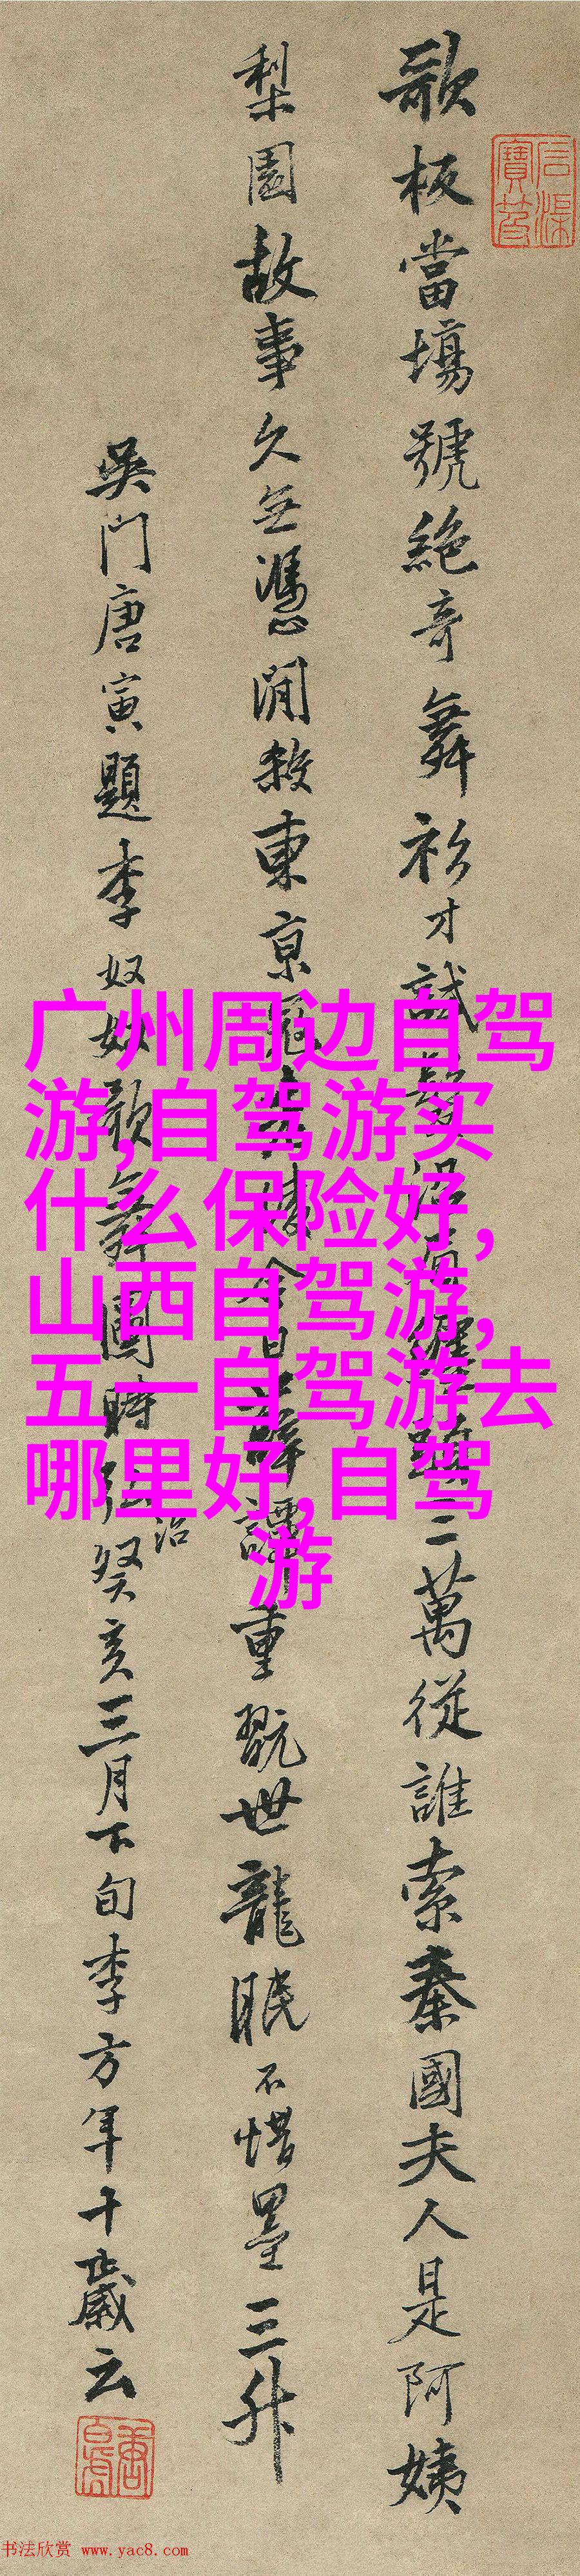 歌板當塲號絕奇舞衫才試萬從誰索秦國夫人是阿姨
梨園故事久無憑閒殺東京今日重翫世龍眠不惜墨三升
吳門唐寅題李奴奴歌舞圖時弘治癸亥三月下旬李方年十歲云
广州周边自驾
游,自驾游买
什么保险好,
山西自驾游,
五一自驾游去
哪里好,自驾
游
书法欣赏 www.yac8.com